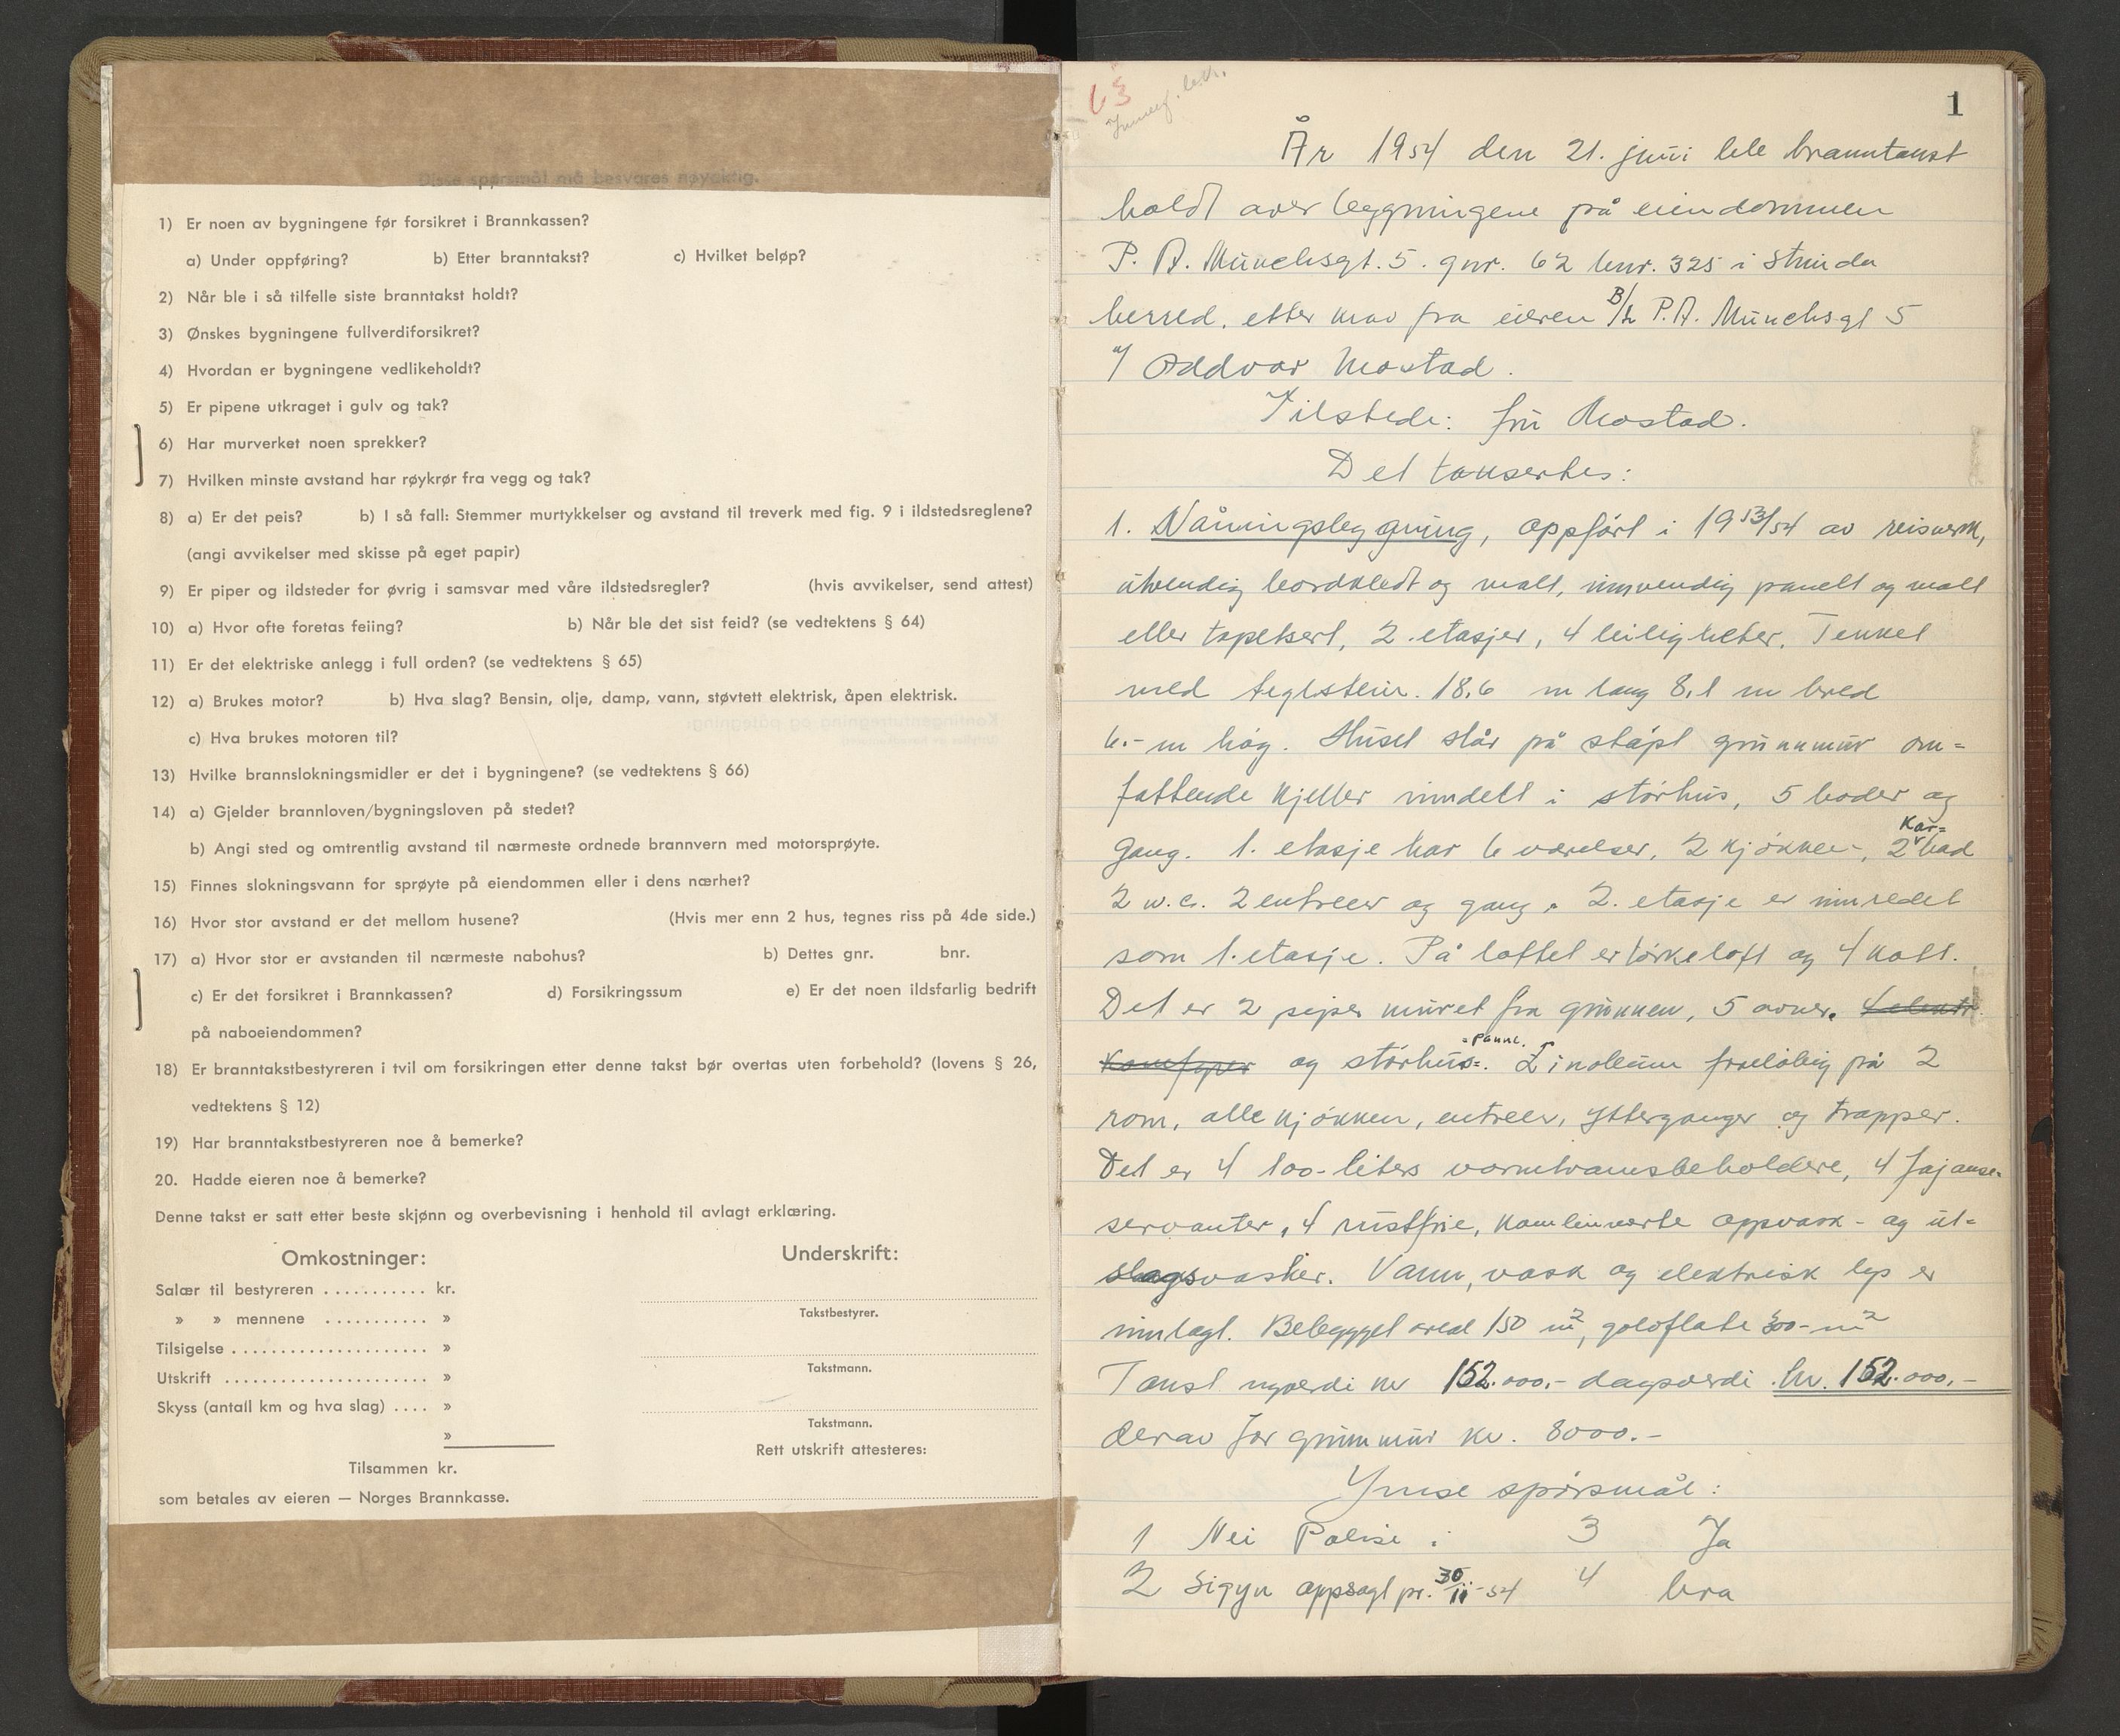 Disse spørsmål må besvares nøyaktig.
1) Er noen av bygningene før forsikret i Brannkassen?
a) Under oppføring? b) Etter branntakst? c) Hvilket beløp?
2) Når ble i så tilfelle siste branntakst holdt?
3) Ønskes bygningene fullverdiforsikret?
4) Hvordan er bygningene vedlikeholdt?
5) Er pipene utkraget i gulv og tak?
6) Har murverket noen sprekker?
7) Hvilken minste avstand har røykrør fra vegg og tak?
8) a) Er det peis? b) I så fall: Stemmer murtykkelser og avstand til treverk med fig. 9 i ildstedsreglene?
(angi avvikelser med skisse på eget papir)
9) Er piper og ildsteder for øvrig i samsvar med våre ildstedsregler? (hvis avvikelser, send attest)
10) a) Hvor ofte foretas feiing? b) Når ble det sist feid? (se vedtektens § 64)
11) Er det elektriske anlegg i full orden? (se vedtektens § 65)
12) a) Brukes motor? b) Hva slag? Bensin, olje, damp, vann, støvtett elektrisk, åpen elektrisk.
c) Hva brukes motoren til?
13) Hvilke brannslokningsmidler er det i bygningene? (se vedtektens § 66)
14) a) Gjelder brannloven/bygningsloven på stedet?
b) Angi sted og omtrentlig avstand til nærmeste ordnede brannvern med motorsprøyte.
15) Finnes slokningsvann for sprøyte på eiendommen eller i dens nærhet?
16) Hvor stor avstand er det mellom husene? (Hvis mer enn 2 hus, tegnes riss på 4de side.)
17) a) Hvor stor er avstanden til nærmeste nabohus? b) Dettes gnr. bnr.
c) Er det forsikret i Brannkassen? d) Forsikringssum e) Er det noen ildsfarlig bedrift
på naboeiendommen?
18) Er branntakstbestyreren i tvil om forsikringen etter denne takst bør overtas uten forbehold? (lovens § 26,
vedtektens § 12)
19) Har branntakstbestyreren noe å bemerke?
20. Hadde eieren noe å bemerke?
Denne takst er satt etter beste skjønn og overbevisning i henhold til avlagt erklæring.
Omkostninger: Underskrift:
Salær til bestyreren ........... kr.
» » mennene ........... » Takstbestyrer.
Tilsigelse ..................... »
Utskrift ...................... » Takstmann.
Skyss (antall km og hva slag) .... »
» Takstmann.
Rett utskrift attesteres:
Tilsammen kr.
som betales av eieren — Norges Brannkasse.
63
1
År 1954 den 21. juni ble branntakst
holdt over bygningene på eiendommen
P. A. Münchsgt. 5. gnr. 62 bnr. 325 i Strinda
herred, etter krav fra eieren B/L P.A. Münchsgt 5
v/ Oddvar Mostad.
Tilstede: fru Mostad.
Det taksertes:
1. Våningsbygning, oppført i 1953/54 av reisverk,
utvendig bordkledt og malt, innvendig panelt og malt
eller tapetsert, 2 etasjer, 4 leiligheter. Tekket
med teglstein. 18.6 m lang 8.1 m bred
6.- m høg. Huset står på støpt grunnmur om=
fattende kjeller inndelt i størhus, 5 boder og
gang. 1. etasje har 6 værelser, 2 kjøkken, 2 Kar= bad
2 w.c. 2 entreer og gang. 2. etasje er innredet
som 1. etasje. På loftet er tørkeloft og 4 kott.
Det er 2 piper muret fra grunnen, 5 ovner. 4 elektr.
Kaminfyrer og størhus= =panne. Linoleum foreløbig på 2
rom, alle kjøkken, entreer, ytterganger og trapper.
Det er 4 100-liters varmtvannsbeholdere, 4 fajanse=
servanter, 4 rustfrie, kombinerte oppvask- og ut=
slagsvasker. Vann, vask og elektrisk lys er
innlagt. Bebygget areal 150 m², golvflate 300- m²
Takst nyverdi kr 152.000.- dagsverdi kr. 152.000,-
derav for grunnmur kr. 8000.-
Ymse spørsmål:
1 Nei Polise : 3 Ja
2 Sigyn oppsagt pr. 30/11-54 4 bra